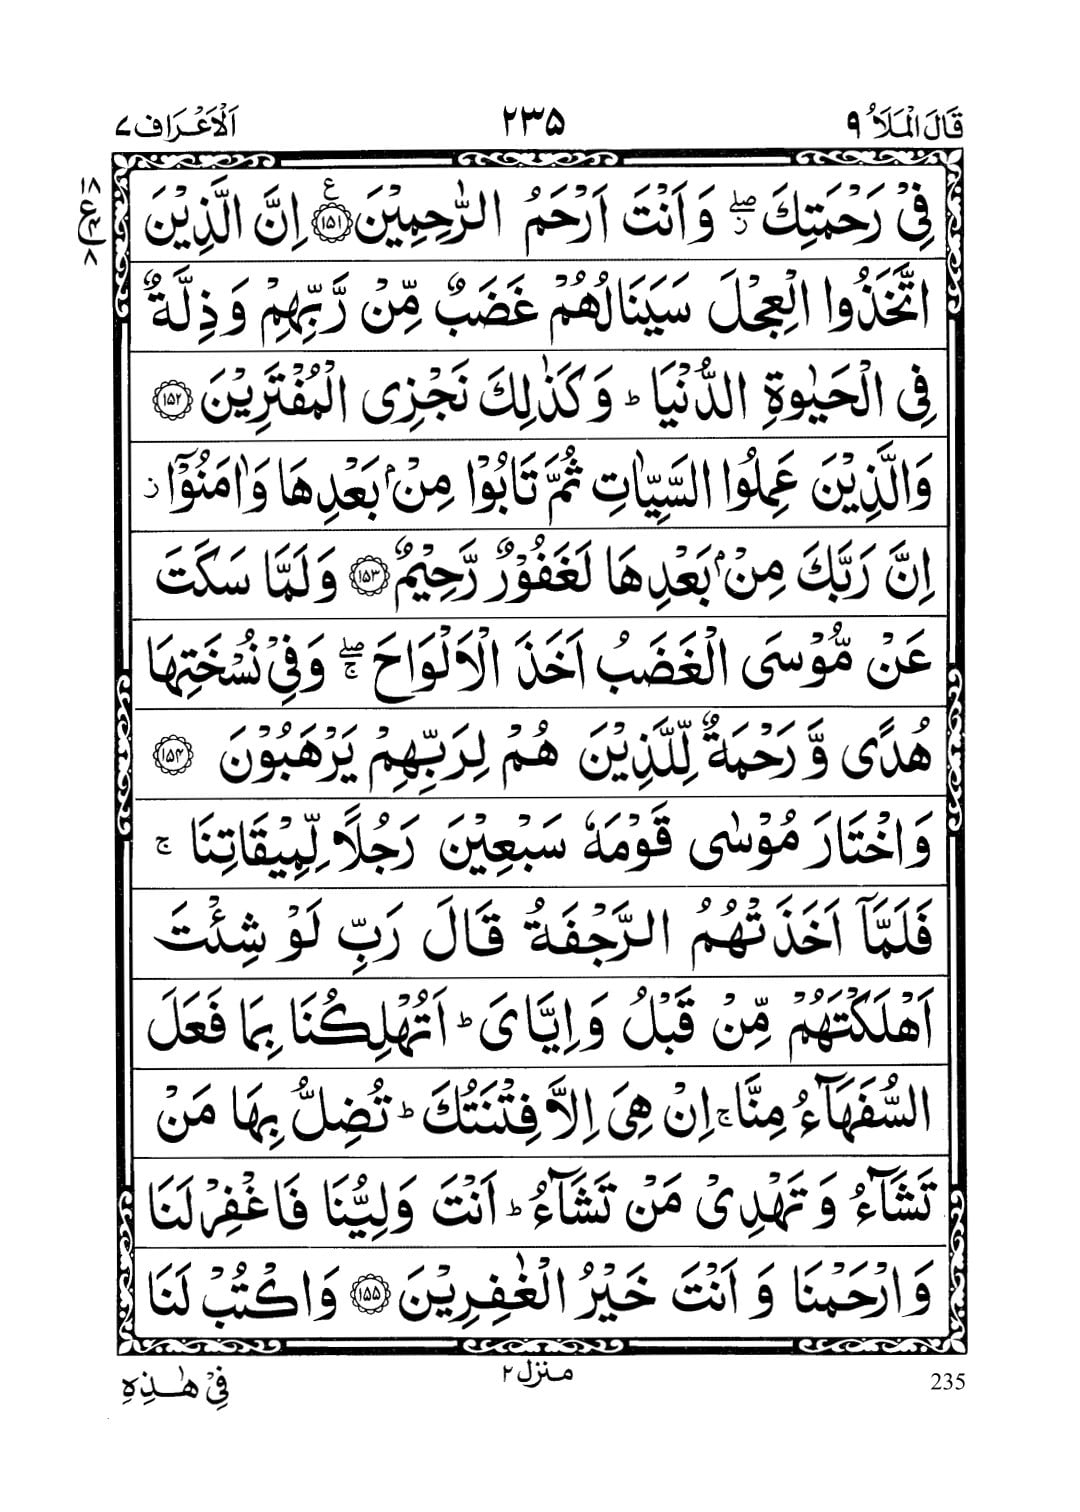 قَالَ الْمَلَاُ ۹ ۲۳۵ اَلْاَعْرَاف ۷
۱۸ ع ۸
فِیْ رَحْمَتِكَ ۖ٘ وَ اَنْتَ اَرْحَمُ الرّٰحِمِیْنَ ﴿۱۵۱﴾ ع اِنَّ الَّذِیْنَ
اتَّخَذُوا الْعِجْلَ سَیَنَالُهُمْ غَضَبٌ مِّنْ رَّبِّهِمْ وَ ذِلَّةٌ
فِی الْحَیٰوةِ الدُّنْیَا ؕ وَ كَذٰلِكَ نَجْزِی الْمُفْتَرِیْنَ ﴿۱۵۲﴾
وَ الَّذِیْنَ عَمِلُوا السَّیِّاٰتِ ثُمَّ تَابُوْا مِنْۢ بَعْدِهَا وَ اٰمَنُوْۤا ز
اِنَّ رَبَّكَ مِنْۢ بَعْدِهَا لَغَفُوْرٌ رَّحِیْمٌ ﴿۱۵۳﴾ وَ لَمَّا سَكَتَ
عَنْ مُّوْسَی الْغَضَبُ اَخَذَ الْاَلْوَاحَ ۖۚ وَ فِیْ نُسْخَتِهَا
هُدًی وَّ رَحْمَةٌ لِّلَّذِیْنَ هُمْ لِرَبِّهِمْ یَرْهَبُوْنَ ﴿۱۵۴﴾
وَ اخْتَارَ مُوْسٰی قَوْمَهٗ سَبْعِیْنَ رَجُلًا لِّمِیْقَاتِنَا ۚ
فَلَمَّاۤ اَخَذَتْهُمُ الرَّجْفَةُ قَالَ رَبِّ لَوْ شِئْتَ
اَهْلَكْتَهُمْ مِّنْ قَبْلُ وَ اِیَّایَ ؕ اَتُهْلِكُنَا بِمَا فَعَلَ
السُّفَهَآءُ مِنَّا ۚ اِنْ هِیَ اِلَّا فِتْنَتُكَ ؕ تُضِلُّ بِهَا مَنْ
تَشَآءُ وَ تَهْدِیْ مَنْ تَشَآءُ ؕ اَنْتَ وَلِیُّنَا فَاغْفِرْ لَنَا
وَ ارْحَمْنَا وَ اَنْتَ خَیْرُ الْغٰفِرِیْنَ ﴿۱۵۵﴾ وَ اكْتُبْ لَنَا
235 منزل ۲ فِیْ هٰذِهِ